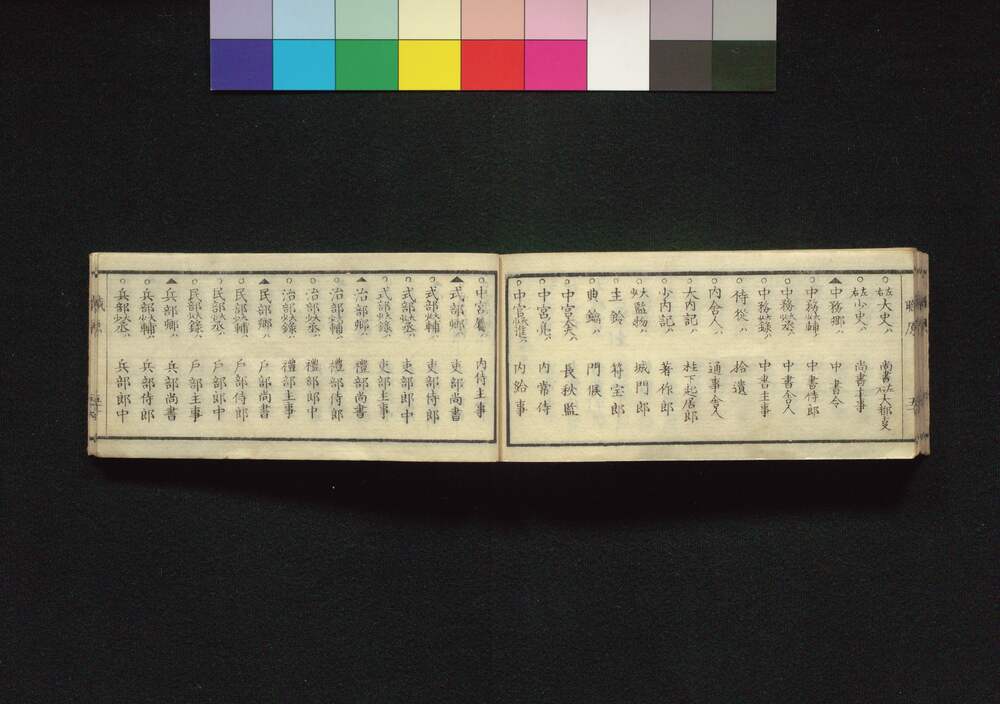 左右大史ハ 尚書左右大都事
左右少史ハ 尚書主事
▲中務卿ハ 中書令
○中務大少輔ハ 中書侍郎
○中務大少丞ハ 中書舎人
○中務大少録ハ 中書主事
○侍從ハ 拾遺
○内舎人ハ 通事舎人
○大内記ハ 柱下起居郎
○少内記ハ 著作郎
○大少監物ハ 城門郎
○主鈴 符宝郎
○典鑰ハ 門候
○中宮大夫ハ 長秋監
○中宮亮ハ 内常侍
○中宮大少進ハ 内給事
○中宮属ハ 内侍主事
▲式部卿ハ 吏部尚書
○式部大少輔ハ 吏部侍郎
○式部大少丞ハ 吏部郎中
○式部大少録ハ 吏部主事
▲治部卿ハ 禮部尚書
○治部大少輔ハ 禮部侍郎
○治部大少丞ハ 禮部郎中
○治部大少録ハ 禮部主事
▲民部卿ハ 戸部尚書
○民部大少輔ハ 戸部侍郎
○民部大少丞ハ 戸部郎中
○民部大少録ハ 戸部主事
▲兵部卿ハ 兵部尚書
○兵部大少輔ハ 兵部侍郎
○兵部大少丞ハ 兵部郎中